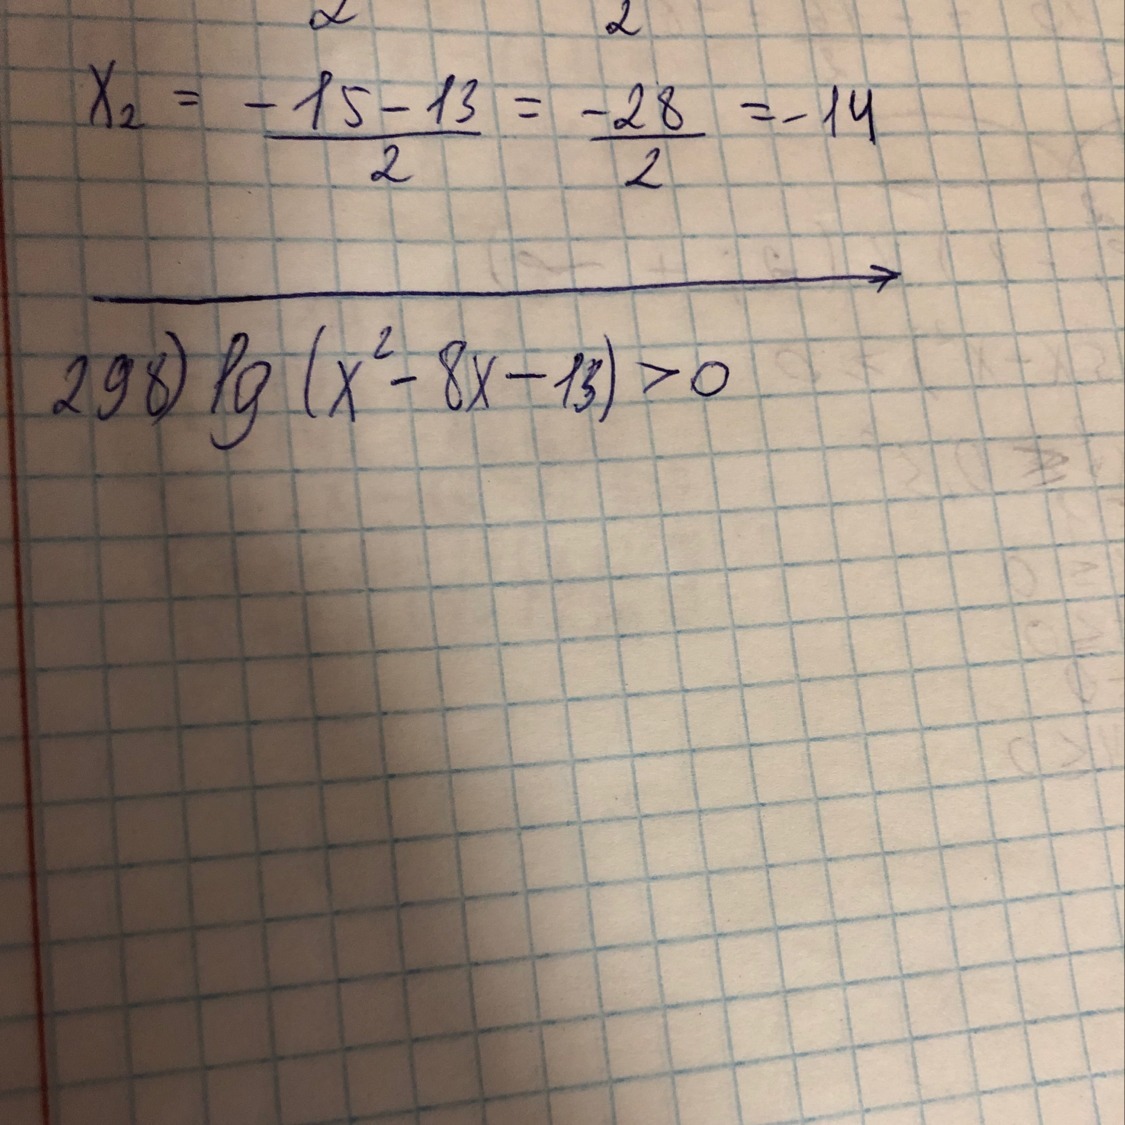 2 2
x₂ = -15-13/2 = -28/2 = -14
298) lg (x² - 8x - 13) > 0